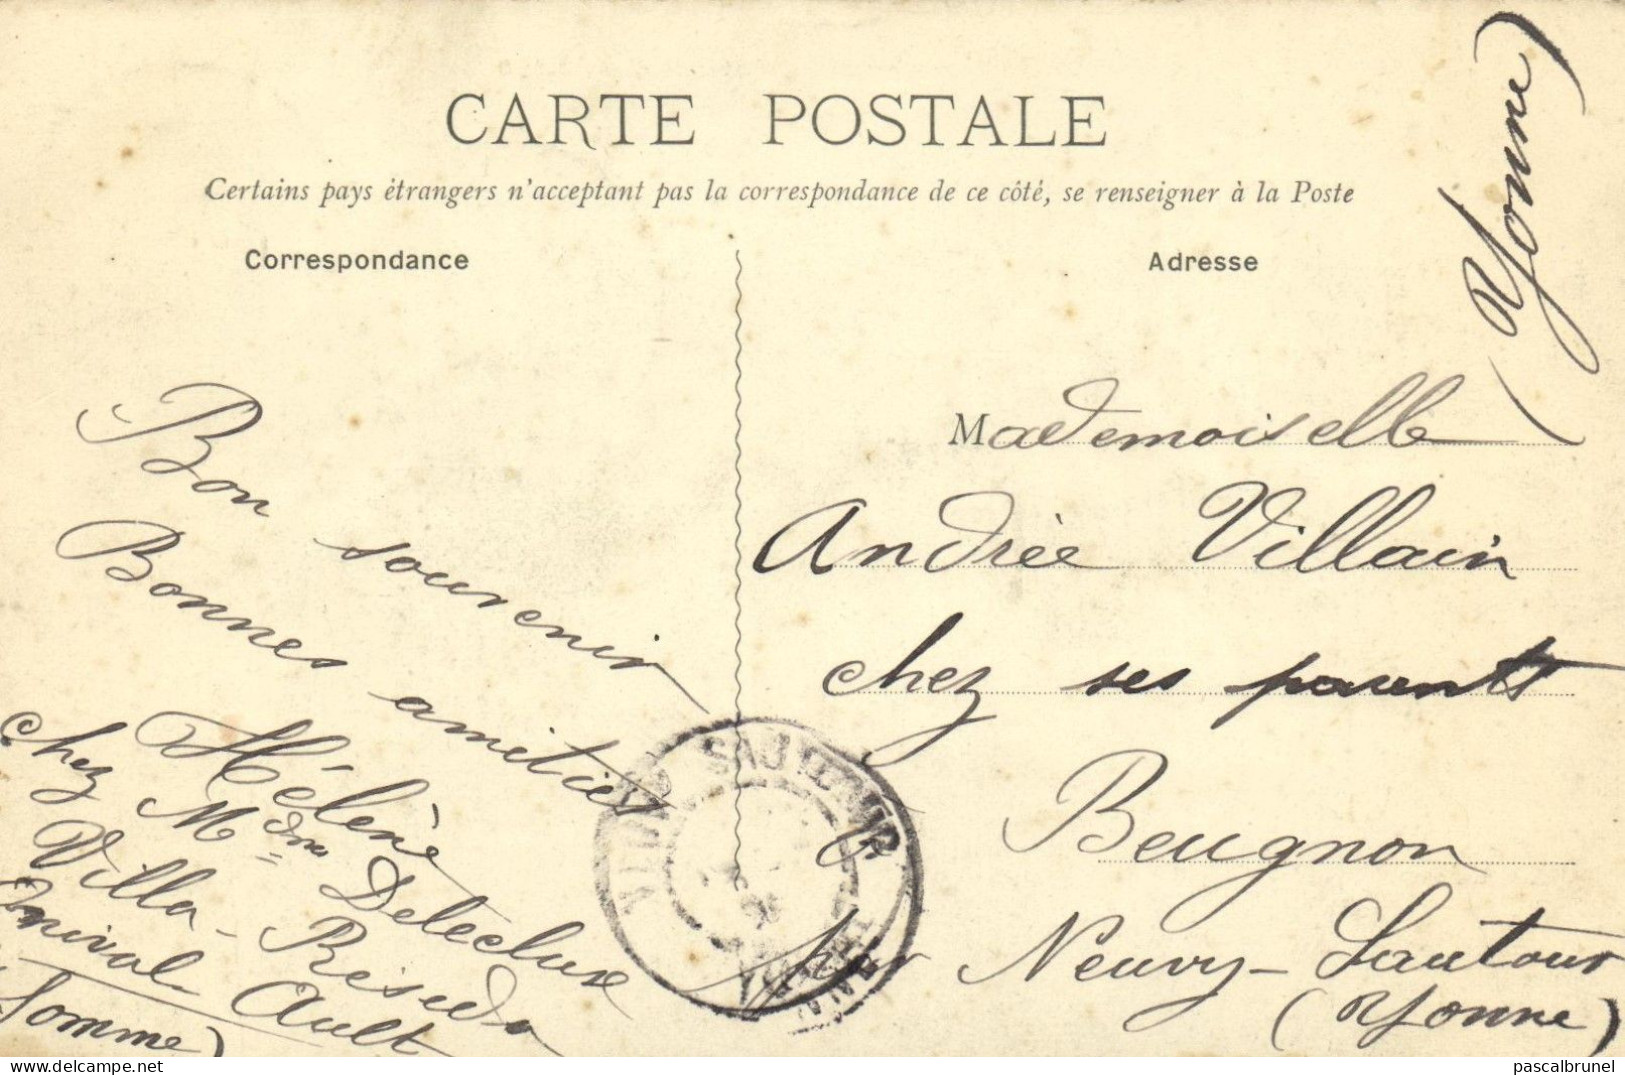 CARTE POSTALE
Certains pays étrangers n'acceptant pas la correspondance de ce côté, se renseigner à la Poste
Correspondance
Adresse
(Yonne)
Bon souvenir
Bonnes amitiés
Hélène
chez Mme Delecluse
Villa - Réséda
Onival Ault
(Somme)
Mademoiselle
Andrée Villain
chez ses parents
à Beugnon
par Neuvy-Sautour
(Yonne)
pascalbrunel